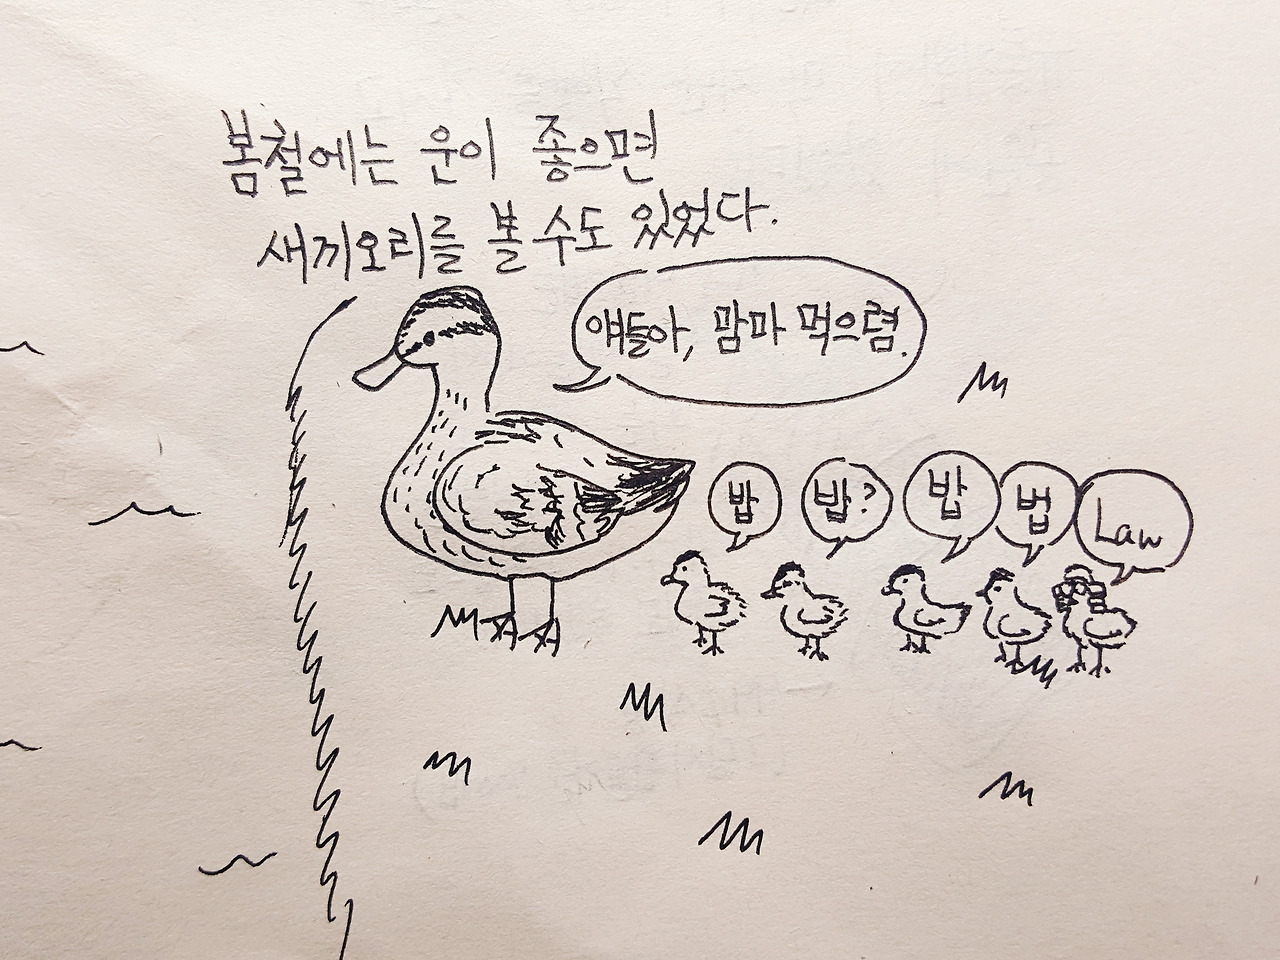 봄철에는 운이 좋으면
새끼오리를 볼 수도 있었다.
얘들아, 맘마 먹으렴.
밥
밥?
밥
법
Law